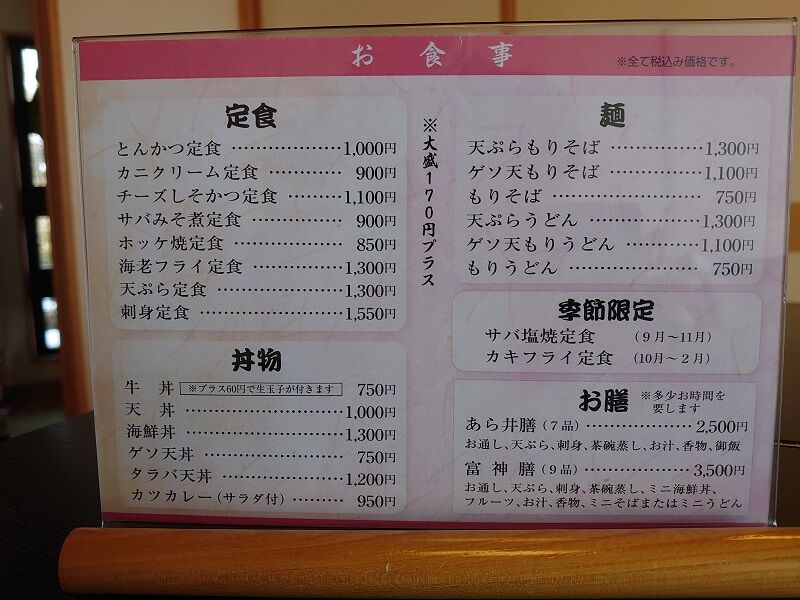 お食事
※全て税込み価格です。
定食
とんかつ定食 ………………… 1,000円
カニクリーム定食 …………… 900円
チーズしそかつ定食 ………… 1,100円
サバみそ煮定食 ……………… 900円
ホッケ焼定食 ………………… 850円
海老フライ定食 ……………… 1,300円
天ぷら定食 …………………… 1,300円
刺身定食 ……………………… 1,550円
丼物
牛 丼 ※プラス60円で生玉子が付きます 750円
天 丼 ………………………… 1,000円
海鮮丼 ………………………… 1,300円
ゲソ天丼 ……………………… 750円
タラバ天丼 …………………… 1,200円
カツカレー(サラダ付) ……… 950円
※大盛170円プラス
麺
天ぷらもりそば ……………… 1,300円
ゲソ天もりそば ……………… 1,100円
もりそば ……………………… 750円
天ぷらうどん ………………… 1,300円
ゲソ天もりうどん …………… 1,100円
もりうどん …………………… 750円
季節限定
サバ塩焼定食 (9月~11月)
カキフライ定食 (10月~2月)
お膳 ※多少お時間を
要します
あら井膳(7品) ……………… 2,500円
お通し、天ぷら、刺身、茶碗蒸し、お汁、香物、御飯
富神膳(9品) ………………… 3,500円
お通し、天ぷら、刺身、茶碗蒸し、ミニ海鮮丼、
フルーツ、お汁、香物、ミニそばまたはミニうどん